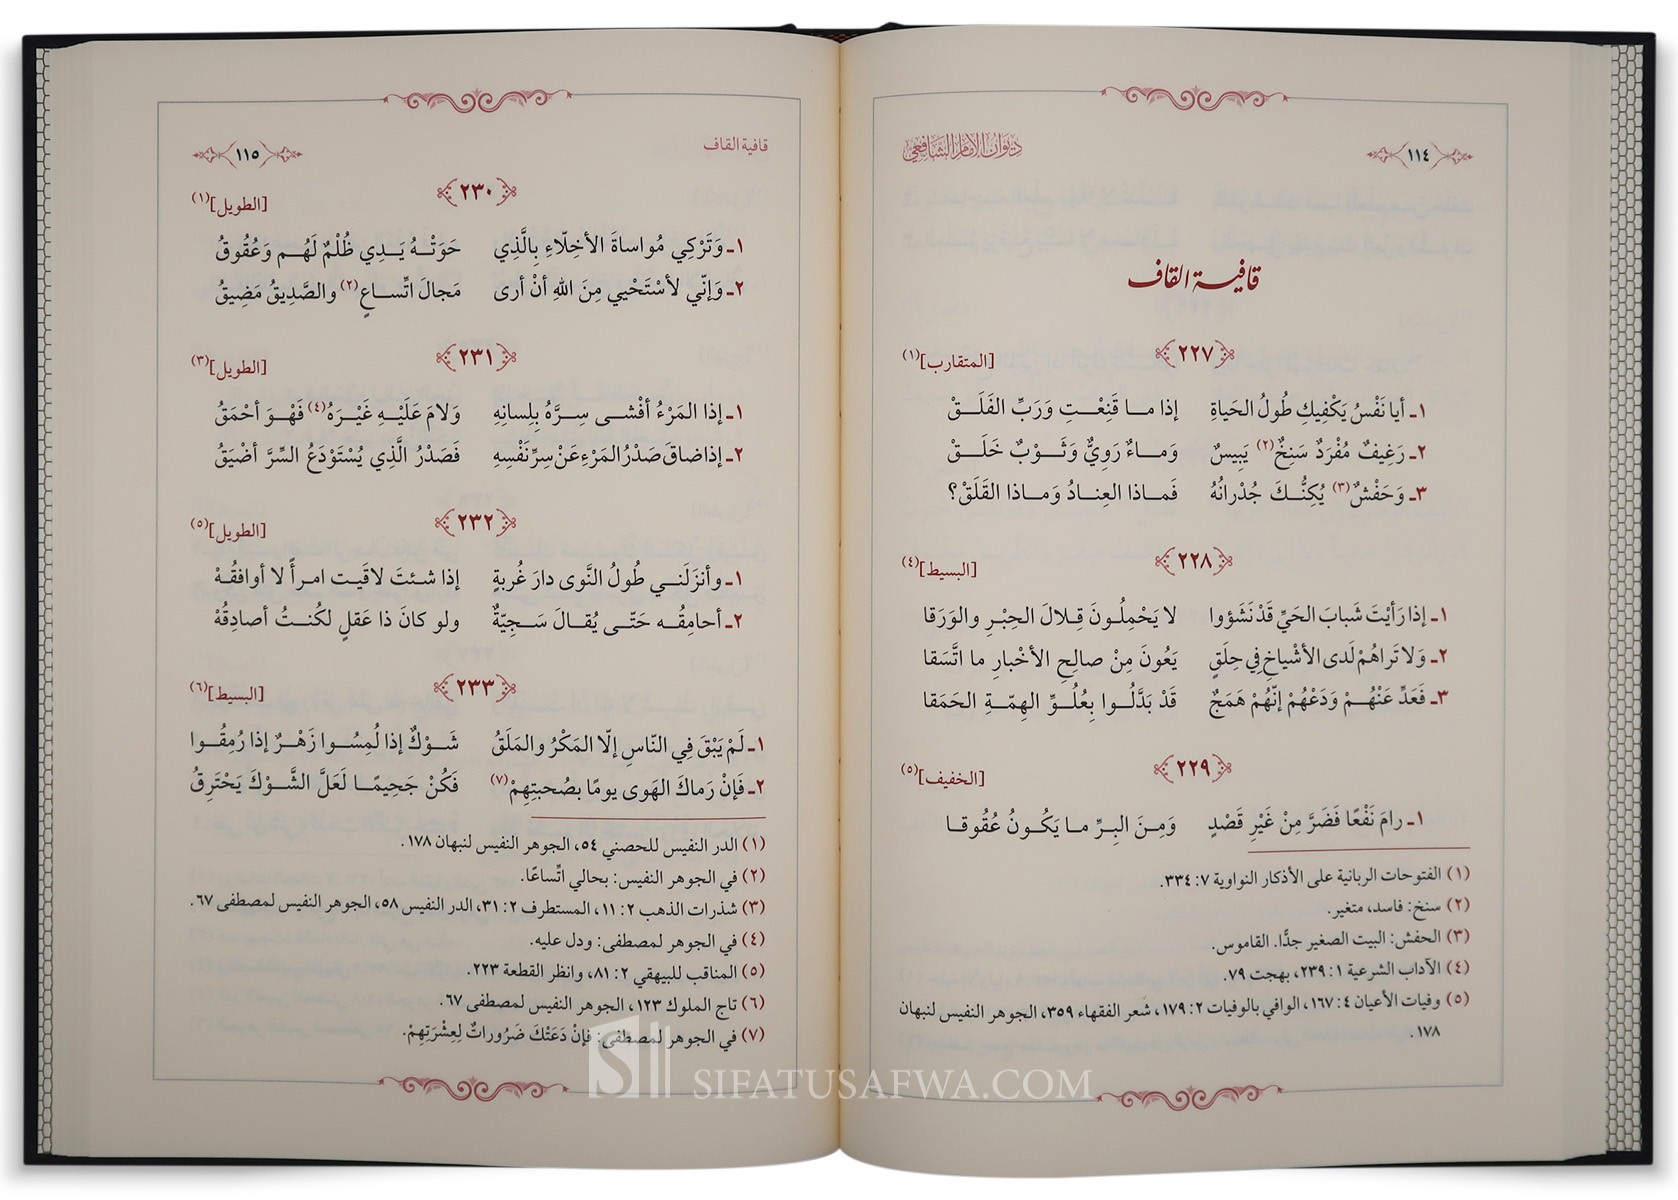 ١١٤ ديوان الإمام الشافعي
قافيـة القاف
٢٢٧
[المتقارب](١)
١ـ أيا نَفْسُ يَكْفِيكِ طُولُ الحَياةِ إذا مـا قَنِعْـتِ وَرَبِّ الفَلَـقْ
٢ـ رَغِيفٌ مُفْرَدٌ سَنِخٌ(٢) يَبِيسٌ وَمـاءٌ رَوِيٌّ وَثَـوْبٌ خَلَـقْ
٣ـ وَحَفْشٌ(٣) يُكِنُّـكَ جُدْرانُهُ فَماذا العِنادُ وَماذا القَلَقْ؟
٢٢٨
[البسيط](٤)
١ـ إذا رَأيْتَ شَبابَ الحَيِّ قَدْ نَشَؤوا لا يَحْمِلُـونَ قِلالَ الحِبْـرِ والوَرَقا
٢ـ وَلا تَراهُمْ لَدى الأشْياخِ فِي حِلَقٍ يَعُونَ مِنْ صالِحِ الأخْبارِ ما اتَّسَقا
٣ـ فَعَدِّ عَنْهُـمْ وَدَعْهُمْ إنَّهُمْ هَمَجٌ قَدْ بَدَّلُـوا بِعُلُـوِّ الهِمّـةِ الحَمَقا
٢٢٩
[الخفيف](٥)
١ـ رامَ نَفْعًا فَضَرَّ مِنْ غَيْرِ قَصْدٍ وَمِـنَ البِـرِّ مـا يَكُـونُ عُقُوقـا
(١) الفتوحات الربانية على الأذكار النواوية ٧: ٣٣٤.
(٢) سنخ: فاسد، متغير.
(٣) الحفش: البيت الصغير جدًّا. القاموس.
(٤) الآداب الشرعية ١: ٢٣٩، بهجت ٧٩.
(٥) وفيات الأعيان ٤: ١٦٧، الوافي بالوفيات ٢: ١٧٩، شعر الفقهاء ٣٥٩، الجوهر النفيس لنبهان
١٧٨.
قافية القاف ١١٥
٢٣٠
[الطويل](١)
١ـ وَتَرْكِي مُواساةَ الأخِلّاءِ بِالَّذِي حَوَتْـهُ يَـدِي ظُلْمٌ لَهُـم وَعُقُوقُ
٢ـ وَإنّي لأسْتَحْيي مِنَ اللهِ أنْ أرى مَجالَ اتِّسـاعٍ(٢) والصَّدِيقُ مَضِيقُ
٢٣١
[الطويل](٣)
١ـ إذا المَرْءُ أفْشـى سِـرَّهُ بِلِسانِهِ وَلامَ عَلَيْـهِ غَيْـرَهُ(٤) فَهْـوَ أحْمَقُ
٢ـ إذا ضاقَ صَدْرُ المَرْءِ عَنْ سِرِّ نَفْسِهِ فَصَدْرُ الَّذِي يُسْتَوْدَعُ السِّرَّ أضْيَقُ
٢٣٢
[الطويل](٥)
١ـ وأنزَلَنـي طُولُ النَّوى دارَ غُربةٍ إذا شـئتَ لاقَيـت امـرأً لا أوافقُـهْ
٢ـ أحامِقُـه حَتّـى يُقـالَ سَـجِيّةٌ ولو كانَ ذا عَقلٍ لكُنـتُ أصادِقُهْ
٢٣٣
[البسيط](٦)
١ـ لَمْ يَبْقَ فِي النّاسِ إلّا المَكْرُ والمَلَقُ شَـوْكٌ إذا لُمِسُـوا زَهْـرٌ إذا رُمِقُـوا
٢ـ فَإنْ رَماكَ الهَوى يومًا بصُحبَتِهِمْ(٧) فَكُنْ جَحِيمًـا لَعَلَّ الشَّـوْكَ يَحْتَرِقُ
(١) الدر النفيس للحصني ٥٤، الجوهر النفيس لنبهان ١٧٨.
(٢) في الجوهر النفيس: بحالي اتِّساعًا.
(٣) شذرات الذهب ٢: ١١، المستطرف ٢: ٣١، الدر النفيس ٥٨، الجوهر النفيس لمصطفى ٦٧.
(٤) في الجوهر لمصطفى: ودل عليه.
(٥) المناقب للبيهقي ٢: ٨١، وانظر القطعة ٢٢٣.
(٦) تاج الملوك ١٢٣، الجوهر النفيس لمصطفى ٦٧.
(٧) في الجوهر لمصطفى: فإنْ دَعَتْكَ ضَرُوراتٌ لِعِشْرَتِهِمْ.
SIFATUSAFWA.COM